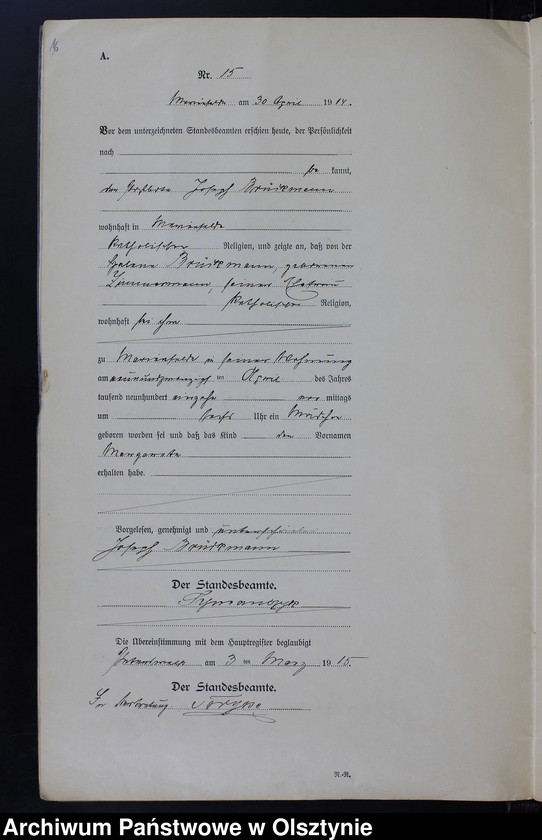 16
A.
Nr. 15
Marienfelde am 30 April 1914.
Vor dem unterzeichneten Standesbeamten erschien heute, der Persönlichkeit
nach
be kannt,
Joseph Brückmann
wohnhaft in Marienfelde
katholischer Religion, und zeigte an, daß von der
Helene Brückmann, geborenen
Zimmermann, seiner Ehefrau
katholischer Religion,
wohnhaft bei ihm
zu Marienfelde in seiner Wohnung
am neunundzwanzigsten April des Jahres
tausend neunhundert vor mittags
um sechs Uhr ein Mädchen
geboren worden sei und daß das Kind den Vornamen
Margarete
erhalten habe.
Vorgelesen, genehmigt und unterschrieben
Joseph Brückmann
Der Standesbeamte.
Die Übereinstimmung mit dem Hauptregister beglaubigt
am 3 ten März 1915.
Der Standesbeamte.
In Vertretung
N.-R.
Archiwum Państwowe w Olsztynie